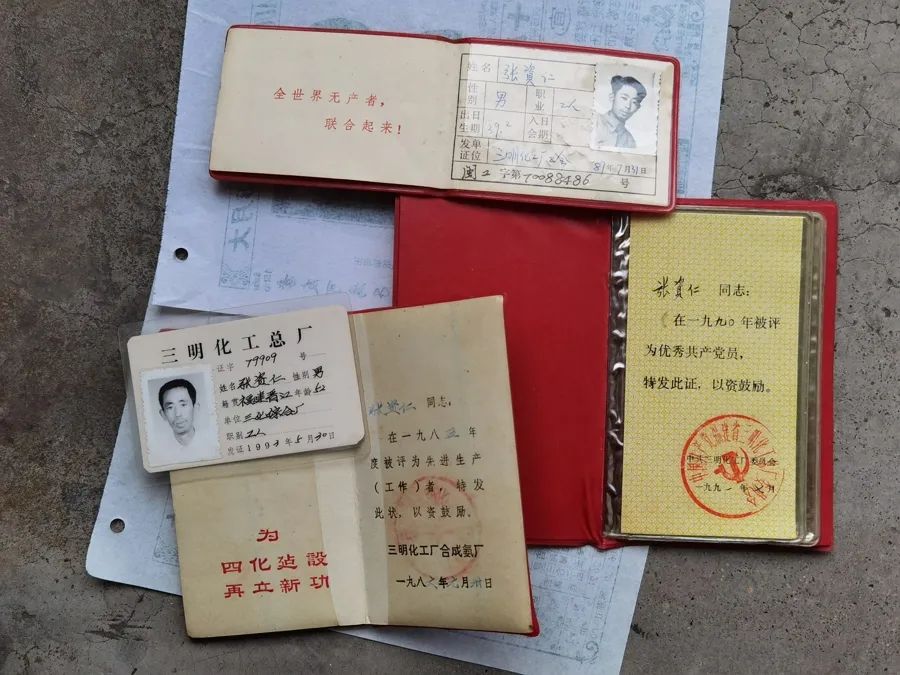 全世界无产者，
联合起来！
姓名 张资仁
性别 男 职业 工人
出生日期 39.2 入会日期
发证单位 三明化工厂工会 87年7月31日
闽工字第70088486号
张资仁 同志：
在一九九〇年被评
为优秀共产党员，
特发此证，以资鼓励。
中共三明化工厂委员会
一九九一年 月
三明化工总厂
证字 79909 号
姓名 张资仁 性别 男
籍贯 福建晋江 年龄 52
单位 三化综合厂
职别 工人
发证 1993年5月30日
张资仁 同志：
在一九八三年
度被评为先进生产
（工作）者，特发
此状，以资鼓励。
三明化工厂合成氨厂
一九八 年 月 日
为
四化建設
再立新功